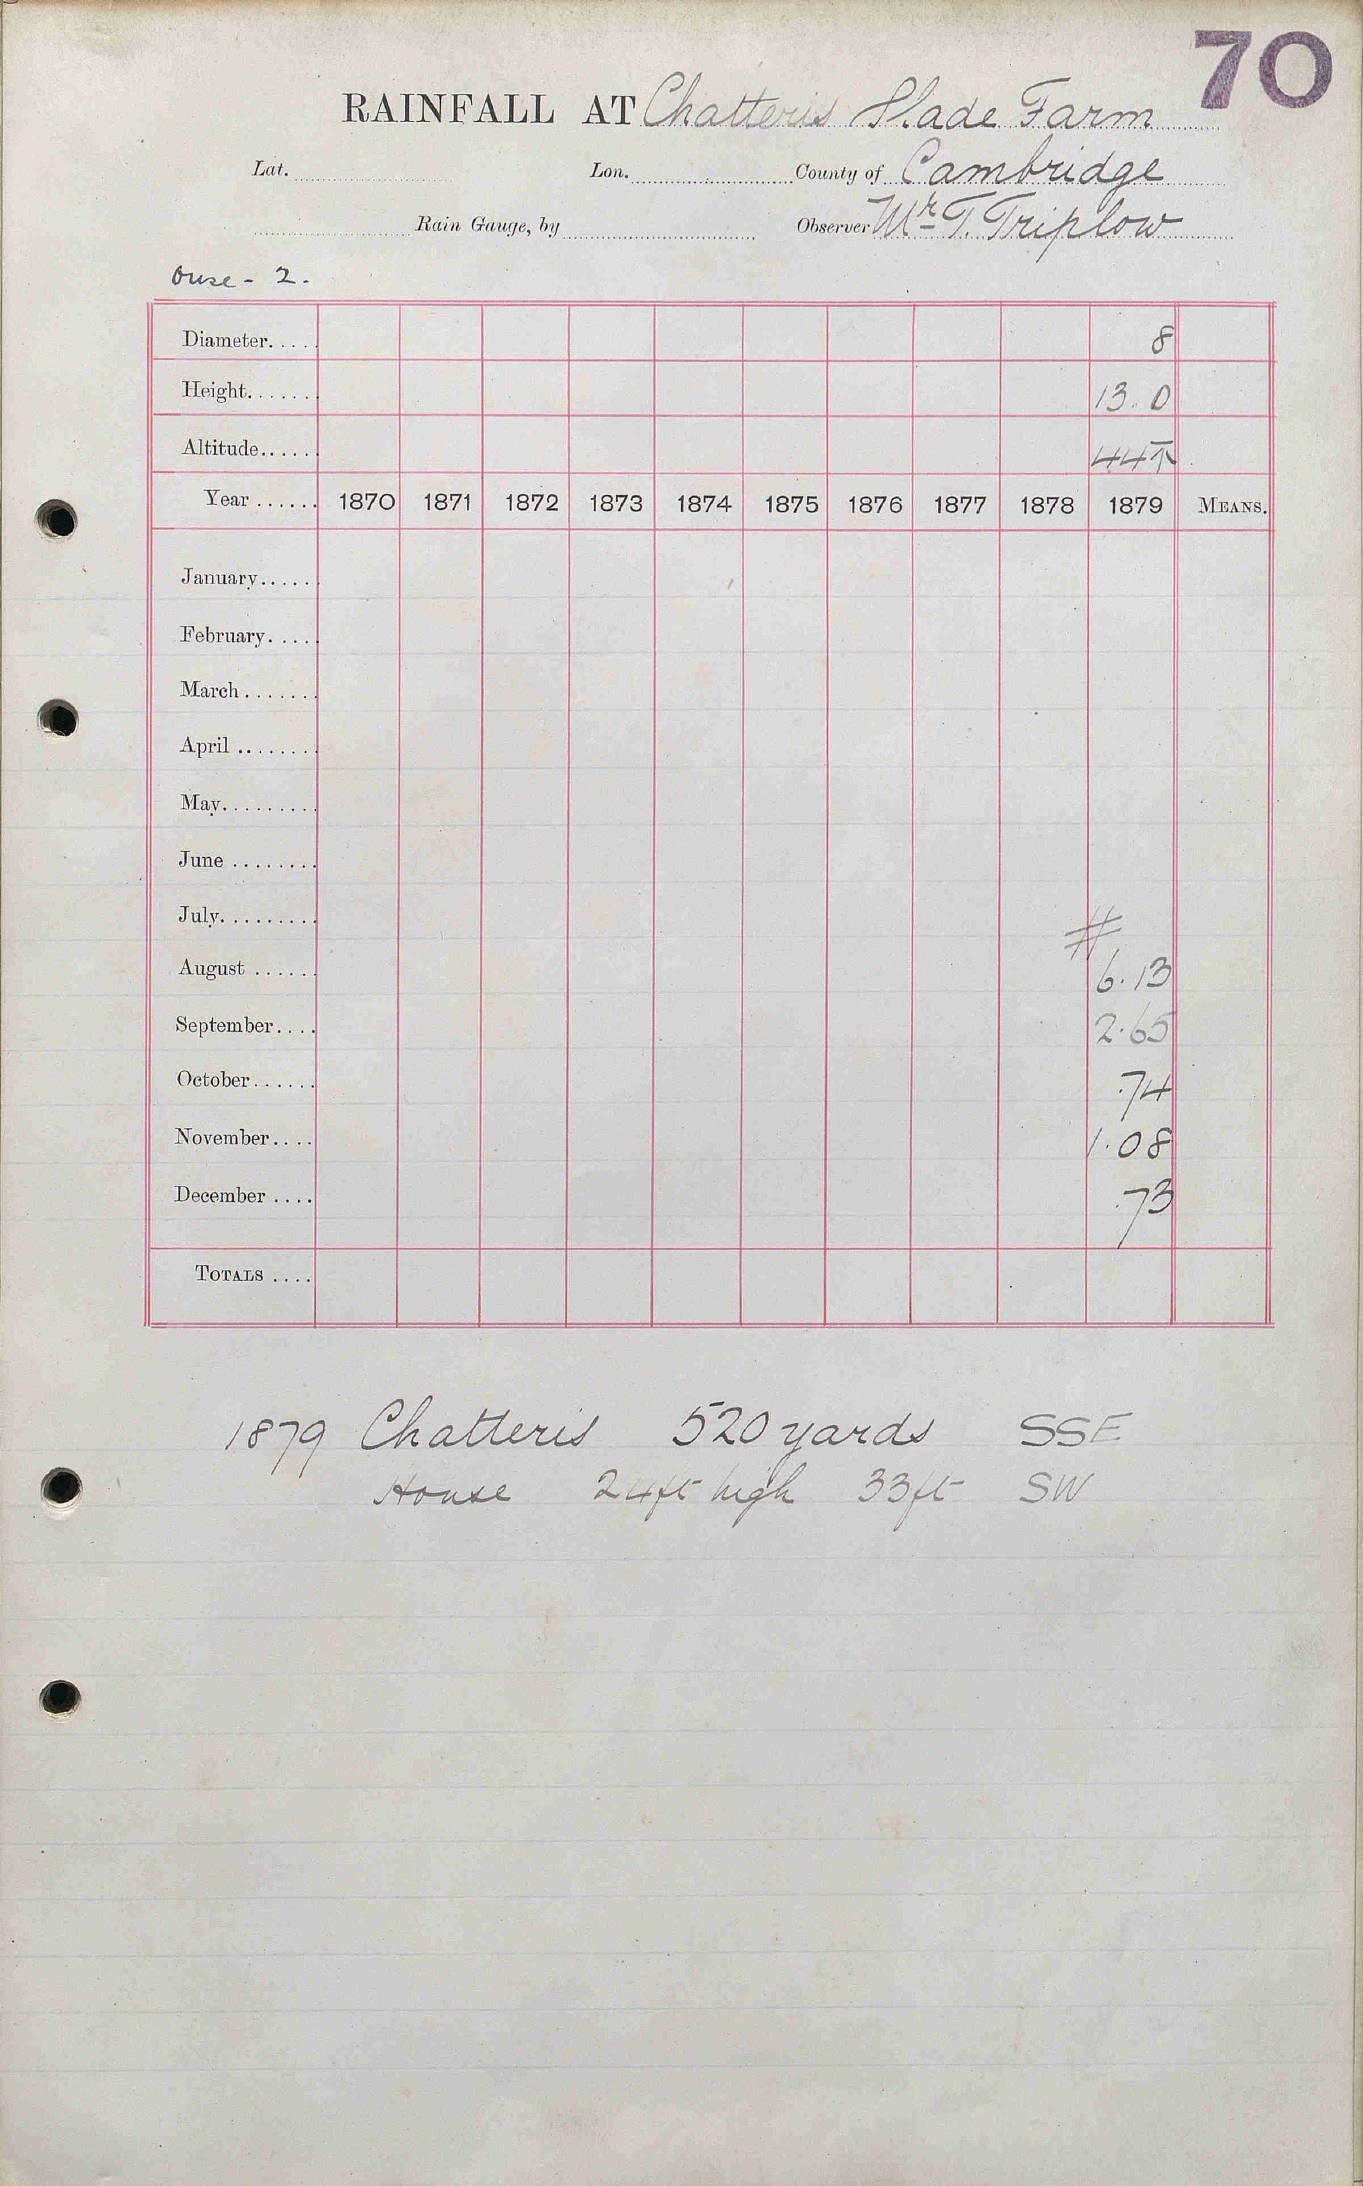 70
RAINFALL AT Chatteris Slade Farm
Lat. Lon. County of Cambridge
Rain Gauge, by Observer Mr T. Triplow
Ouse - 2.
Diameter..... 8
Height....... 13.0
Altitude...... 44
Year ...... 1870 1871 1872 1873 1874 1875 1876 1877 1878 1879 MEANS.
January......
February.....
March .......
April ........
May.........
June ........
July......... #
August ...... 6.13
September.... 2.65
October...... .74
November.... 1.08
December .... .73
TOTALS ....
1879 Chatteris 520 yards SSE
House 24ft high 33ft SW